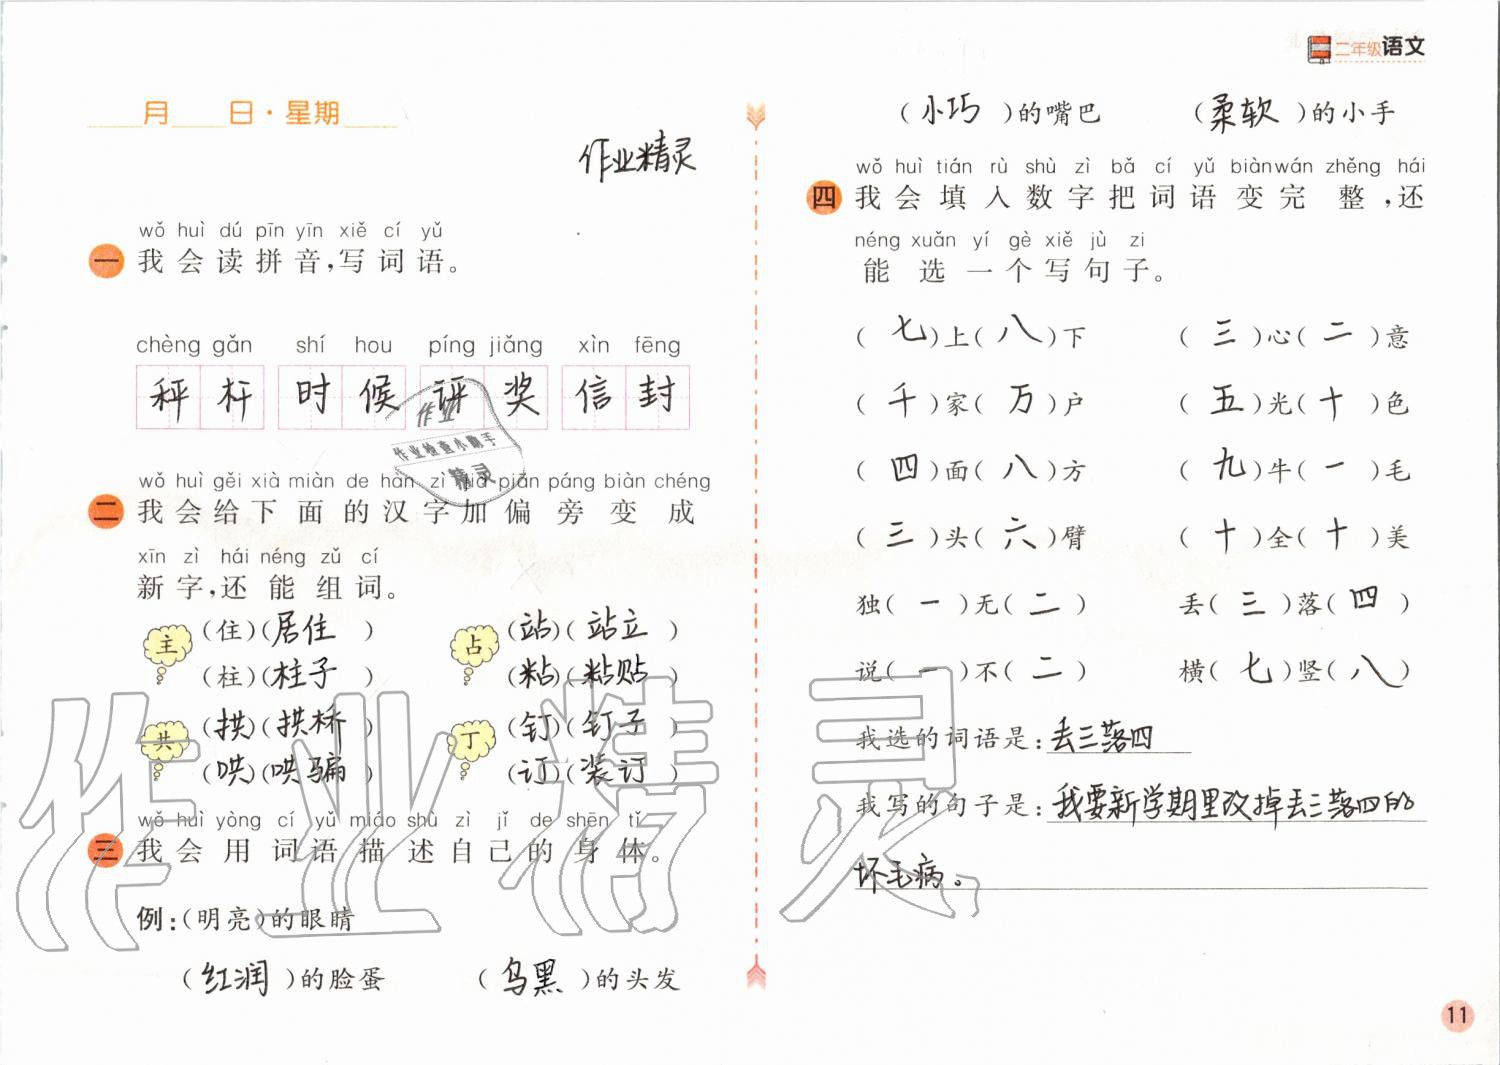 二年级语文
月 日·星期
作业精灵
wǒ huì dú pīn yīn xiě cí yǔ
一 我会读拼音,写词语。
chèng gǎn shí hou píng jiǎng xìn fēng
秤杆 时候 评奖 信封
作业
作业检查小助手
精灵
wǒ huì gěi xià miàn de hàn zì jiā piān páng biàn chéng
二 我会给下面的汉字加偏旁变成
xīn zì hái néng zǔ cí
新字,还能组词。
主 (住)(居住) 占 (站)(站立)
(柱)(柱子) (粘)(粘贴)
共 (拱)(拱桥) 丁 (钉)(钉子)
(哄)(哄骗) (订)(装订)
wǒ huì yòng cí yǔ miáo shù zì jǐ de shēn tǐ
三 我会用词语描述自己的身体。
例:(明亮)的眼睛
(红润)的脸蛋 (乌黑)的头发
(小巧)的嘴巴 (柔软)的小手
wǒ huì tián rù shù zì bǎ cí yǔ biàn wán zhěng hái
四 我会填入数字把词语变完整,还
néng xuǎn yí gè xiě jù zi
能选一个写句子。
(七)上(八)下 (三)心(二)意
(千)家(万)户 (五)光(十)色
(四)面(八)方 (九)牛(一)毛
(三)头(六)臂 (十)全(十)美
独(一)无(二) 丢(三)落(四)
说(一)不(二) 横(七)竖(八)
我选的词语是:丢三落四
我写的句子是:我要新学期里改掉丢三落四的
坏毛病。
作业精灵
11